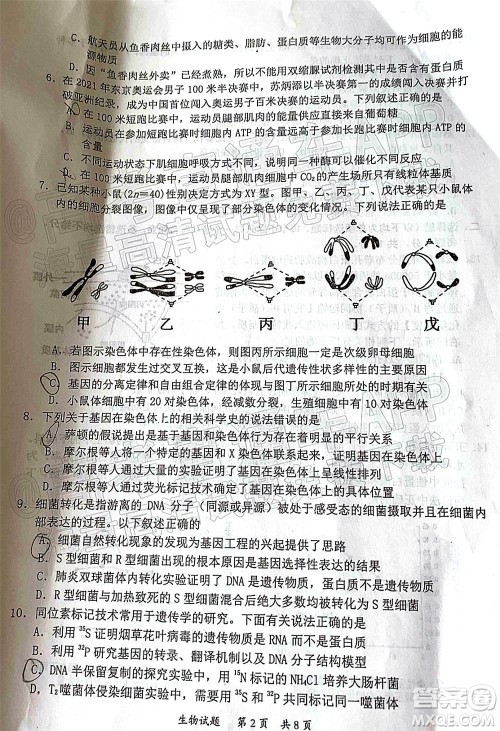 C. 航天员从鱼香肉丝中摄入的糖类、脂肪、蛋白质等生物大分子均可作为细胞的能
源物质
D. 因“鱼香肉丝外卖”已经煮熟，所以不能用双缩脲试剂检测其中的蛋白质
6. 在 2021 年东京奥运会男子 100 米半决赛中，苏炳添以半决赛第一的成绩闯入决赛并打
破亚洲纪录，成为中国首位闯入奥运男子百米决赛的运动员。下列叙述正确的是
A. 在 100 米短跑比赛时，运动员腿部肌肉的能量供应主要来自葡萄糖
B. 运动员在参加短跑比赛时细胞内 ATP 的含量远高于参加长跑比赛时细胞内 ATP 的
含量
C. 不同运动状态下肌细胞呼吸方式不同，但呼吸第一阶段完全相同
D. 在 100 米短跑比赛时，腿部肌肉细胞中 CO₂的产生场所只有线粒体基质
7. 已知某种小鼠(2n=40)性别决定方式为 XY 型。图甲、乙、丙、丁、戊代表某只小鼠体
内的细胞分裂图像，图像中仅呈现了部分染色体的变化情况。下列说法正确的是
甲 乙 丙 丁 戊
A. 若图示染色体中存在性染色体，则图丙所示细胞一定是次级卵母细胞
B. 图甲所示细胞发生了染色体变异，这是小鼠后代遗传多样性的主要原因
C. 基因的分离定律和自由组合定律与图丁所示细胞所处的时期有关
D. 小鼠体细胞中有 20 对染色体，经减数分裂，生殖细胞中有 10 对染色体
8. 下列关于基因在染色体上的相关科学史的说法错误的是
A. 萨顿依据假说—演绎法推测基因与染色体存在明显的平行关系
B. 摩尔根等人将一个特定的基因和 X 染色体联系起来
C. 摩尔根等人通过测定基因位置得出基因在染色体上呈线性排列
D. 科学家用荧光标记技术确定了基因在染色体上的位置
9. 细菌转化是指游离的 DNA 分子（同源或异源）被处于感受态的细菌摄取并在细菌内
部表达的过程。以下叙述正确的是
A. 细菌自然转化现象的发现为基因工程的兴起提供了思路
B. S 型细菌和 R 型细菌致病性不同的原因是基因选择性表达
C. 肺炎双球菌体内转化实验证明了 DNA 是遗传物质，蛋白质不是遗传物质
D. R型细菌与加热致死的 S 型细菌混合后绝大多数转化为 S 型细菌
10. 同位素标记技术常用于遗传学的研究。下面有关说法正确的是
A. 利用 ³⁵S 证明烟草花叶病毒的遗传物质是 RNA 而不是蛋白质
B. 利用 ³⁵S 研究基因的转录、翻译机制以及 DNA 分子结构模型
C. DNA 半保留复制的探究实验中，用 ¹⁵N 标记的 NH₄Cl 培养大肠杆菌
D. T₂噬菌体侵染细菌的实验中，需要用含 ³²S
生物试题 第 2 页 共 8 页